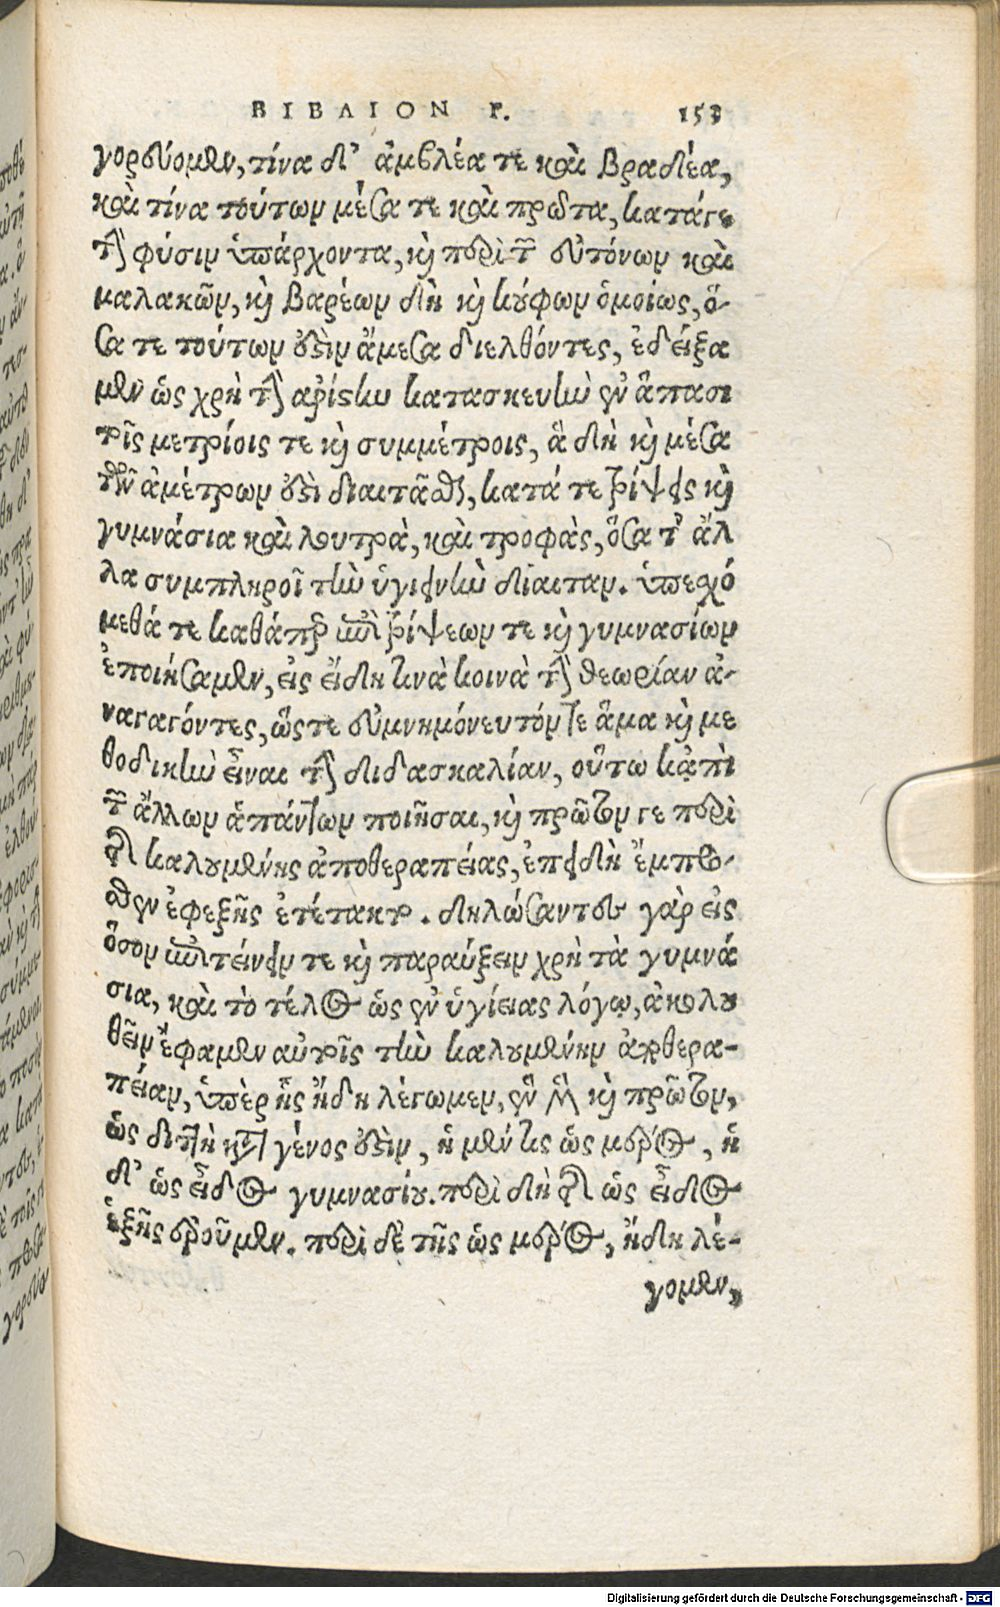 ΒΙΒΛΙΟΝ Γ. 153
γορεύομεν, τίνα δ' ἀμβλέα τε καὶ βραδέα,
καὶ τίνα τούτων μέσα τε καὶ πρῶτα, κατά γε
τὴν φύσιν ὑπάρχοντα, καὶ περὶ τῶν εὐτόνων καὶ
μαλακῶν, καὶ βαρέων δὴ καὶ κούφων ὁμοίως, ὅ-
σα τε τούτων ἐστὶν ἄμεσα διελθόντες, ἐδείξα
μεν ὡς χρὴ τὴν ἀρίστην κατασκευὴν ἐν ἅπασι
τοῖς μετρίοις τε καὶ συμμέτροις, ἃ δὴ καὶ μέσα
τῶν ἀμέτρων ἐστὶ διαιτᾶσθαι, κατά τε τρίψεις καὶ
γυμνάσια καὶ λουτρὰ, καὶ τροφὰς, ὅσα τ' ἄλ
λα συμπληροῖ τὴν ὑγιεινὴν δίαιταν. ὑπεσχό
μεθά τε καθάπερ ἐπὶ τρίψεων τε καὶ γυμνασίων
ἐποιήσαμεν, εἰς εἴδη τινὰ κοινὰ τὴν θεωρίαν ἀ-
ναγαγόντες, ὥστε εὐμνημόνευτόν τε ἅμα καὶ με
θοδικὴν εἶναι τὴν διδασκαλίαν, οὕτω κἀπὶ
τῶν ἄλλων ἁπάντων ποιῆσαι, καὶ πρῶτον γε περὶ
τῆς καλουμένης ἀποθεραπείας, ἐπειδὴ ἔμπρο-
σθεν ἐφεξῆς ἐτέτακτο. δηλώσαντες γὰρ εἰς
ὅσον ἐπιτείνειν τε καὶ παραύξειν χρὴ τὰ γυμνά
σια, καὶ τὸ τέλος ὡς ἐν ὑγίειας λόγῳ, ἀκολου
θεῖν ἔφαμεν αὐτοῖς τὴν καλουμένην ἀποθερα-
πείαν, ὑπὲρ ἧς ἤδη λέγωμεν, ἓν μὴν καὶ πρῶτον,
ὡς διττὴ κατὰ γένος ἐστὶν, ἡ μέν τις ὡς μέρος, ἡ
δ' ὡς εἶδος γυμνασίου. περὶ δὴ τῆς ὡς εἶδος
ἑξῆς ἐροῦμεν. περὶ δὲ τῆς ὡς μέρος, ἤδη λέ-
γομεν,
Digitalisierung gefördert durch die Deutsche Forschungsgemeinschaft - DFG